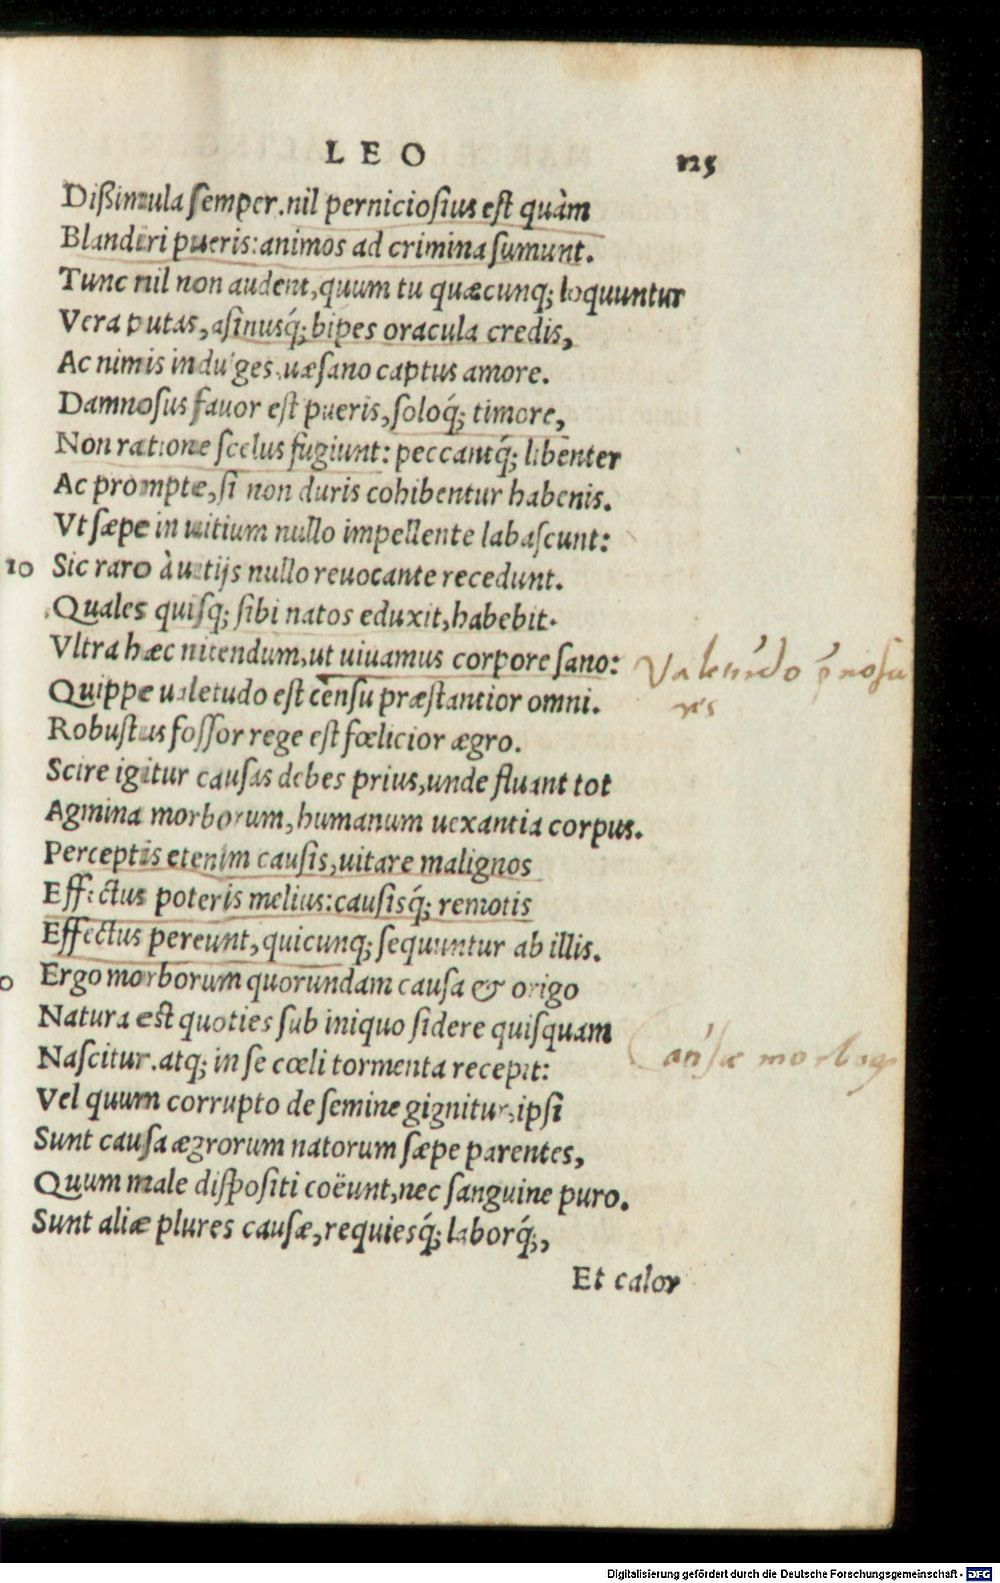 LEO 125
Dißimula semper. nil perniciosius est quàm
Blandiri pueris: animos ad crimina sumunt.
Tunc nil non audent, quum tu quæcunq; loquuntur
Vera putas, asinusq́; bipes oracula credis,
Ac nimis indulges, uæsano captus amore.
Damnosus fauor est pueris, soloq́; timore,
Non ratione scelus fugiunt: peccantq́; libenter
Ac prompte, si non duris cohibentur habenis.
Vt sæpe in uitium nullo impellente labascunt:
10 Sic raro à uitijs nullo reuocante recedunt.
Quales quisq; sibi natos eduxit, habebit.
Vltra hæc nitendum, ut uiuamus corpore sano:
Quippe ualetudo est censu præstantior omni.
Robustus fossor rege est fœlicior ægro.
Scire igitur causas debes prius, unde fluant tot
Agmina morborum, humanum uexantia corpus.
Perceptis etenim causis, uitare malignos
Effectus poteris melius: causisq́; remotis
Effectus pereunt, quicunq; sequuntur ab illis.
0 Ergo morborum quorundam causa & origo
Natura est quoties sub iniquo sidere quisquam
Nascitur. atq; in se cœli tormenta recepit:
Vel quum corrupto de semine gignitur, ipsi
Sunt causa ægrorum natorum sæpe parentes,
Quum male dispositi coëunt, nec sanguine puro.
Sunt aliæ plures causæ, requiesq́; laborq́;,
Et calor
Causæ
Digitalisierung gefördert durch die Deutsche Forschungsgemeinschaft - DFG